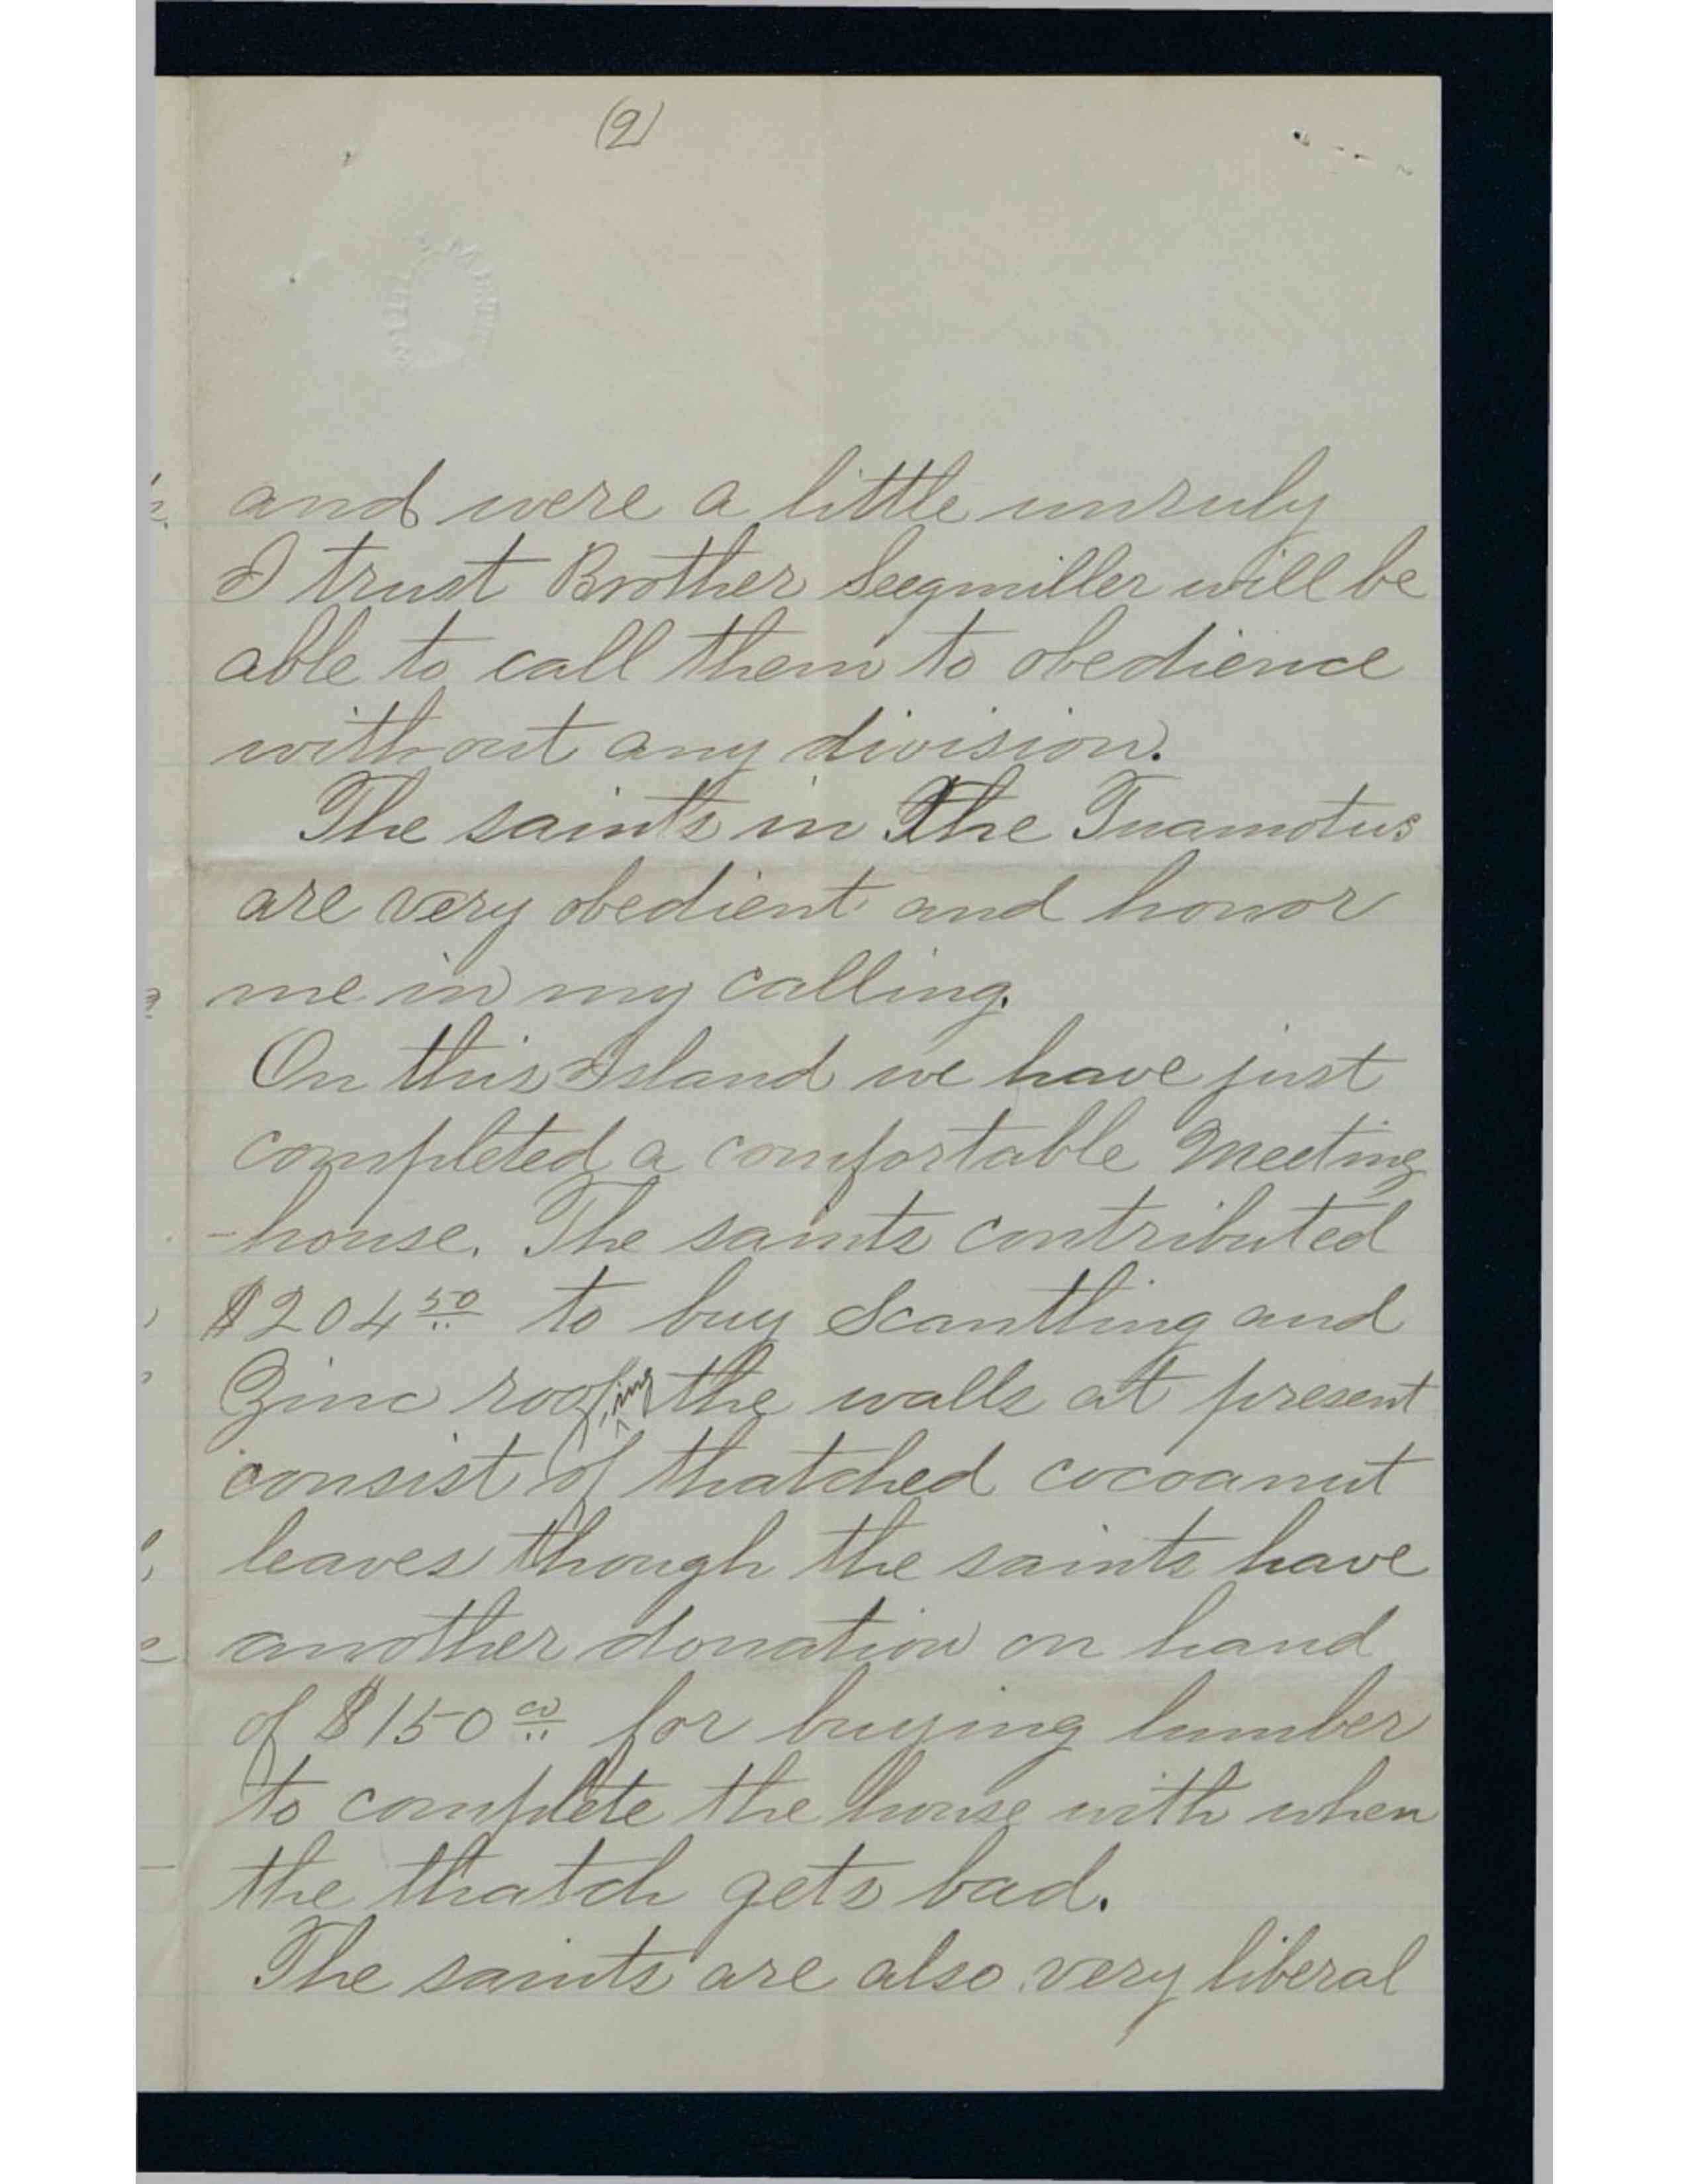 (2)
and were a little unruly
I trust Brother Seegmiller will be
able to call them to obedience
without any division.
The saints in The Tuamotus
are very obedient and honor
me in my calling.
On this Island we have just
completed a comfortable Meeting
-house. The saints contributed
$204 50 to buy Scantling and
Zinc roofing the walls at present
consist of thatched cocoanut
leaves though the saints have
another donation on hand
of $150 00 for buying lumber
to complete the house with when
the thatch gets bad.
The saints are also very liberal